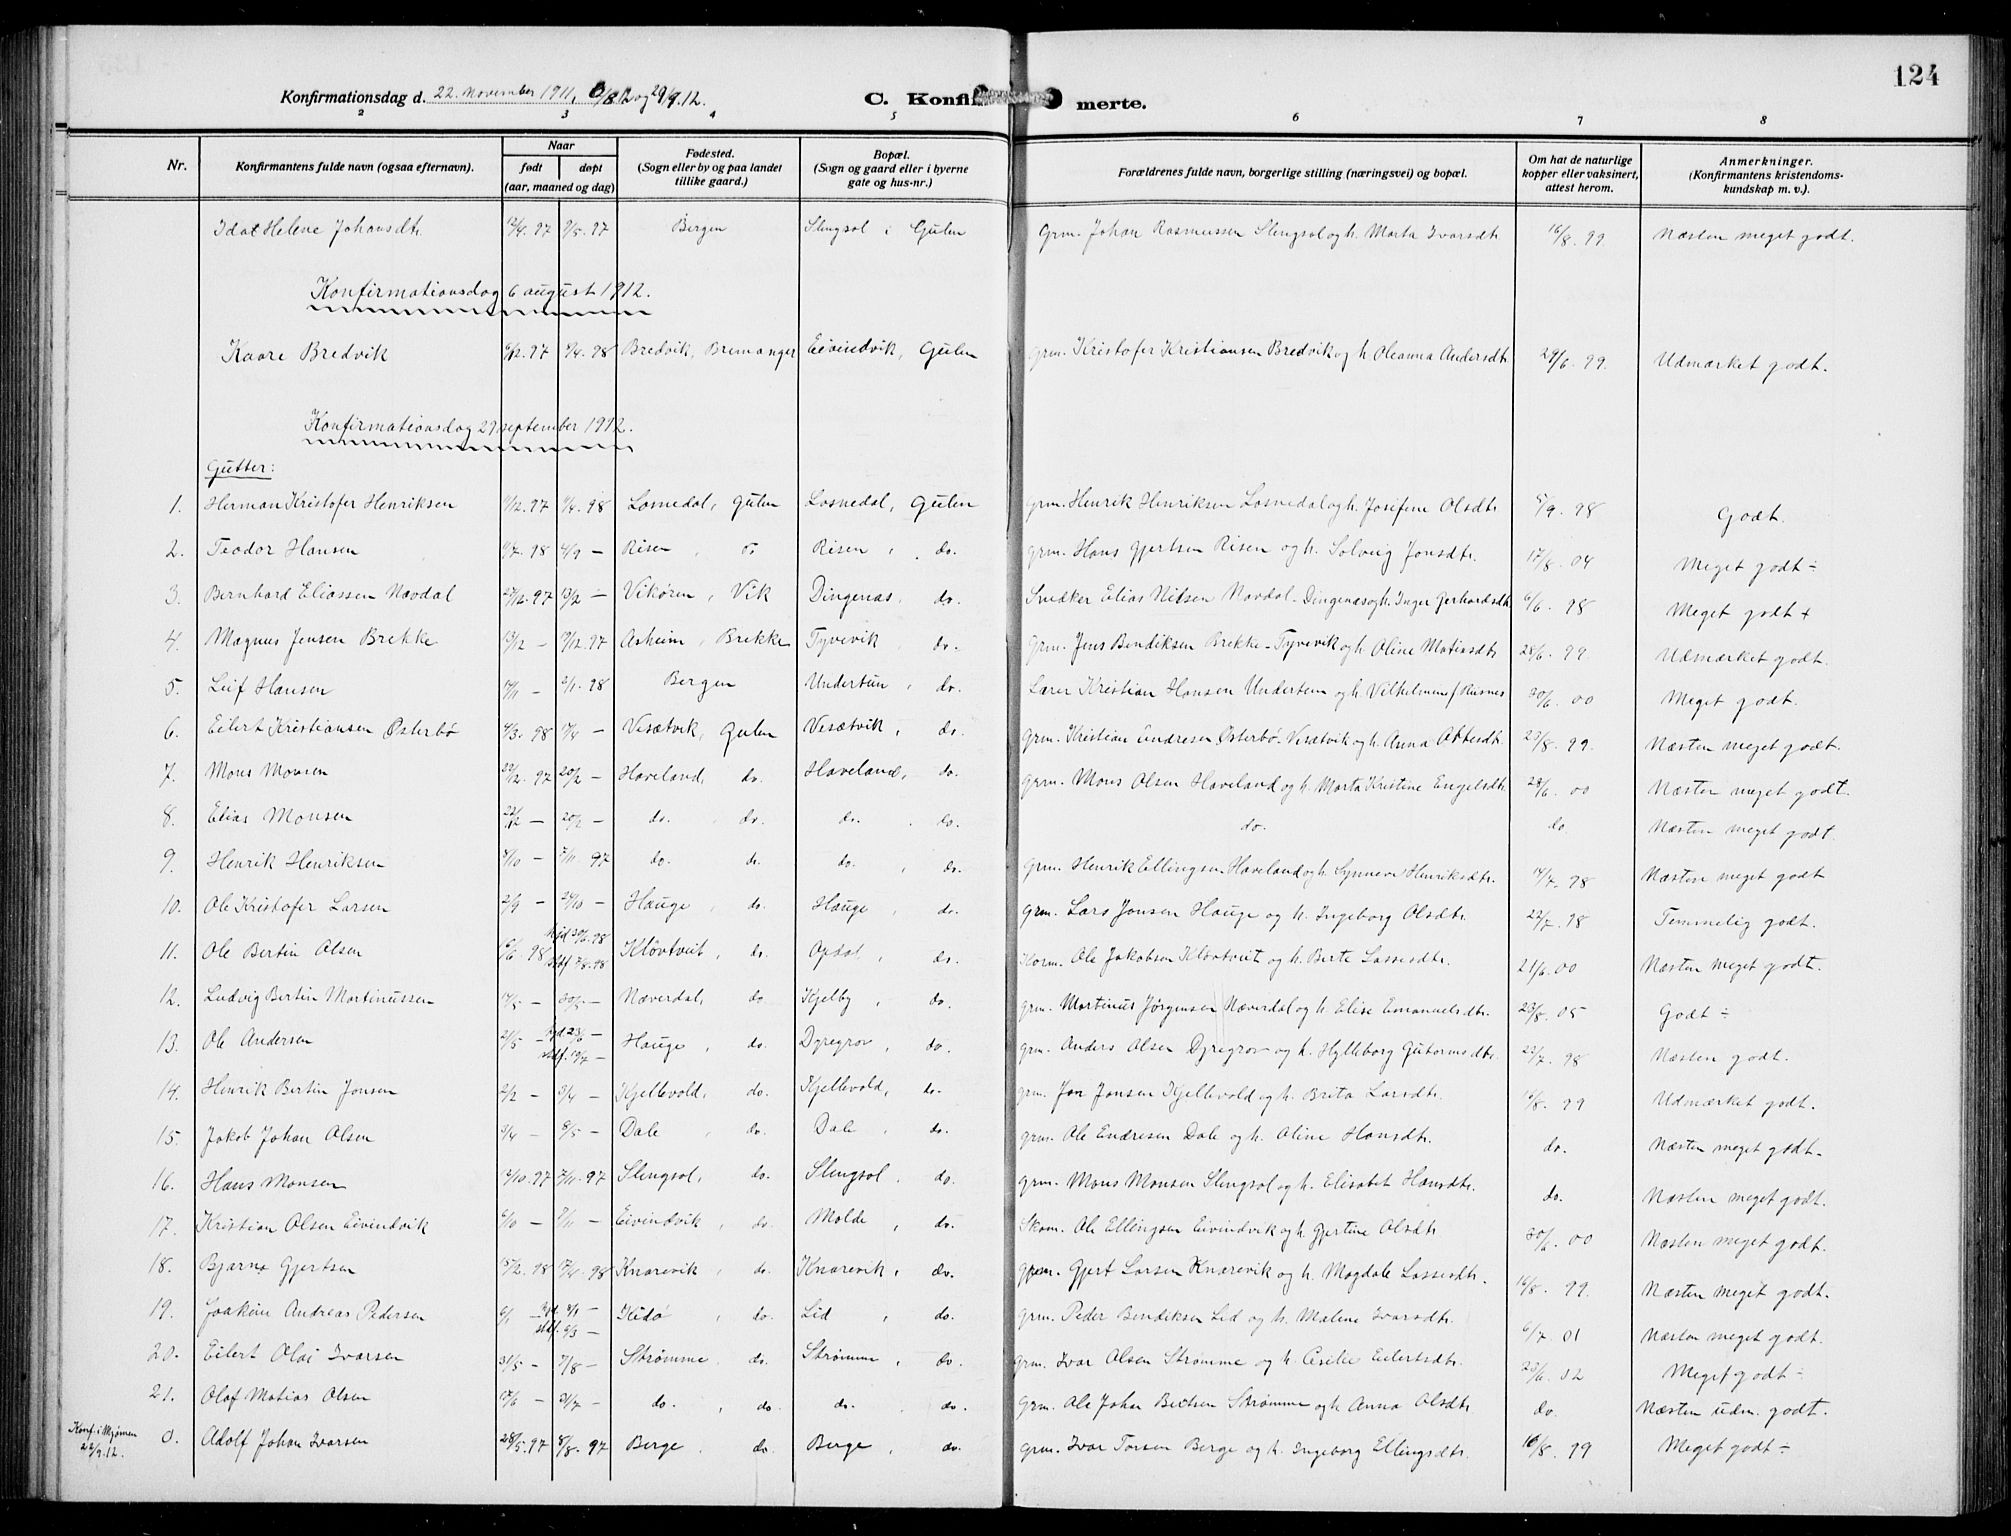 124
Konfirmationsdag d. 22. november 1911, 6/8 12 og 29/9. 12. C. Konfirmerte.
2 3 4 5 6 7 8
Nr. Konfirmantens fulde navn (ogsaa efternavn). Naar født døpt (aar, maaned og dag) Fødested. (Sogn eller by og paa landet tillike gaard.) Bopæl. (Sogn og gaard eller i byerne gate og hus-nr.) Forældrenes fulde navn, borgerlige stilling (næringsvei) og bopæl. Om hat de naturlige kopper eller vaksinert, attest herom. Anmerkninger. (Konfirmantens kristendoms-kundskap m. v.).
Helene Johansdtr. 97 9/5. 97 Bergen Slengsol i Gulen Grm. Johan Rasmussen Slengsol og h. Marta Ivarsdtr. 16/8. 99 Næsten meget godt.
Konfirmationsdag 6 august 1912.
Kaare Bredvik 97 98 Bredvik, Bremanger Eivindvik, Gulen grm. Kristofer Kristiansen Bredvik og h. Oleanna Andersdtr. 29/6. 99. Udmærket godt.
Konfirmationsdag 29 september 1912.
Gutter:
1. Herman Kristofer Henriksen 97 98 Losnedal, Gulen Losnedal, Gulen grm. Henrik Henriksen Losnedal og h. Josefine Olsdtr. 5/9. 98 Godt.
2. Teodor Hansen 98 4/9 — Risen, Risen, do. grm. Hans Gjertsen Risen og h. Solveig Jonsdtr. 17/8. 04 Meget godt ÷
3. Bernhard Eliassen Navdal 97 13/2 — Vikøren, Vik Dingenæs, do. Snedker Elias Nilsen Navdal - Dingenæs og h. Inger Gerhardsdtr. 6/6. 98 Meget godt +
4. Magnus Jensen Brekke 13/12 — 97 Asheim, Brekke Tyvevik, do. Grm. Jens Bendiksen Brekke - Tyvevik og h. Oline Matiasdtr. 28/6. 99. Udmærket godt.
5. Leif Hansen 17/11 — 2/1. 98 Bergen Undertun, do. Lærer Kristian Hansen Undertun og h. Vilhelmine f. Rusnes 30/6. 00 Meget godt.
6. Eilert Kristiansen Østerbø 4/3. 98 17/4 — Visætvik, Gulen Visætvik, do. grm. Kristian Endresen Østerbø - Visætvik og h. Anna Ottesdtr. 25/8. 99. Næsten meget godt.
7. Mons Monsen 22/12. 97 20/2 — Haveland, do. Haveland, do. grm. Mons Olsen Haveland og h. Marta Kristine Engelsdtr. 28/6. 00 Næsten meget godt.
8. Elias Monsen 22/12 — 20/2 — do. do. do. do. do. do. Næsten meget godt.
9. Henrik Henriksen 8/10 — 7/11. 97 do. do. do. do. Grm. Henrik Ellingsen Haveland og h. Synneve Henriksdtr. 14/7. 98 Næsten meget godt
10. Ole Kristofer Larsen 2/9 — 24/10 — Hauge, do. Hauge, do. grm. Lars Jonsen Hauge og h. Ingeborg Olsdtr. 22/7. 98 Temmelig godt.
11. Ole Bertin Olsen 16/6. 98 hjd 30/6. 98 stdf 7/8. 98 Kløvtveit, do. Opdal, do. Korm. Ole Jakobsen Kløvtveit og h. Berte Lassesdtr. 21/6. 00 Næsten meget godt.
12. Ludvig Bertin Martinussen 14/5 — 30/5 — Næverdal, do. Kjelby, do. grm. Martinus Jørgensen Næverdal og h. Elise Emanuelsdtr. 23/8. 05 Godt ÷
13. Ole Andersen 21/5 — hjd 23/6 — stdf. 17/7 — Hauge, do. Dyregrov, do. grm. Anders Olsen Dyregrov og h. Hylleborg Gutormsdtr. 22/7. 98 Næsten godt.
14. Henrik Bertin Jonsen 2/2 — 3/4 — Kjellevold, do. Kjellevold, do. grm. Jon Jonsen Kjellevold og h. Brita Larsdtr. 16/8. 99 Udmærket godt.
15. Jakob Johan Olsen 3/4 — 8/5 — Dale, do. Dale, do. grm. Ole Endresen Dale og h. Oline Hansdtr. do. Næsten meget godt.
16. Hans Monsen 12/10. 97 7/11. 97 Slengsol, do. Slengsol, do. grm. Mons Monsen Slengsol og h. Elisabet Hansdtr. do. Næsten meget godt.
17. Kristian Olsen Eivindvik 6/10 — 7/11 — Eivindvik, do. Molde, do. Skom. Ole Ellingsen Eivindvik og h. Gjertine Olsdtr. 30/6. 00 Næsten meget godt.
18. Bjarne Gjertsen 15/2. 98 17/4. 98 Knarevik, do. Knarevik, do. grm. Gjert Larsen Knarevik og h. Magdale Lassesdtr. 16/8. 99. Næsten meget godt.
19. Joakim Andreas Pedersen 6/1 — hjd. 9/1 — stdf. 6/3 — Kidø, do. Lid, do. grm. Peder Bendiksen Lid og h. Malene Ivarsdtr. 6/7 01 Næsten meget godt.
20. Eilert Olai Ivarsen 31/5 — 7/8 — Strømme, do. Strømme, do. grm. Ivar Olsen Strømme og h. Cesilie Eilertsdtr. 25/6. 02 Meget godt ÷
21. Olaf Matias Olsen 17/6 — 31/7 — do. do. do. do. grm. Ole Johan Olsen Strømme og h. Anna Olsdtr. do. Næsten udm. godt.
Konf. i Mjømen 22/9. 12. 0. Adolf Johan Ivarsen 28/5. 97 8/8. 97 Berge, do. Berge, do. grm. Ivar Torsen Berge og h. Ingeborg Ellingsdtr. 16/8. 99 Meget godt ÷